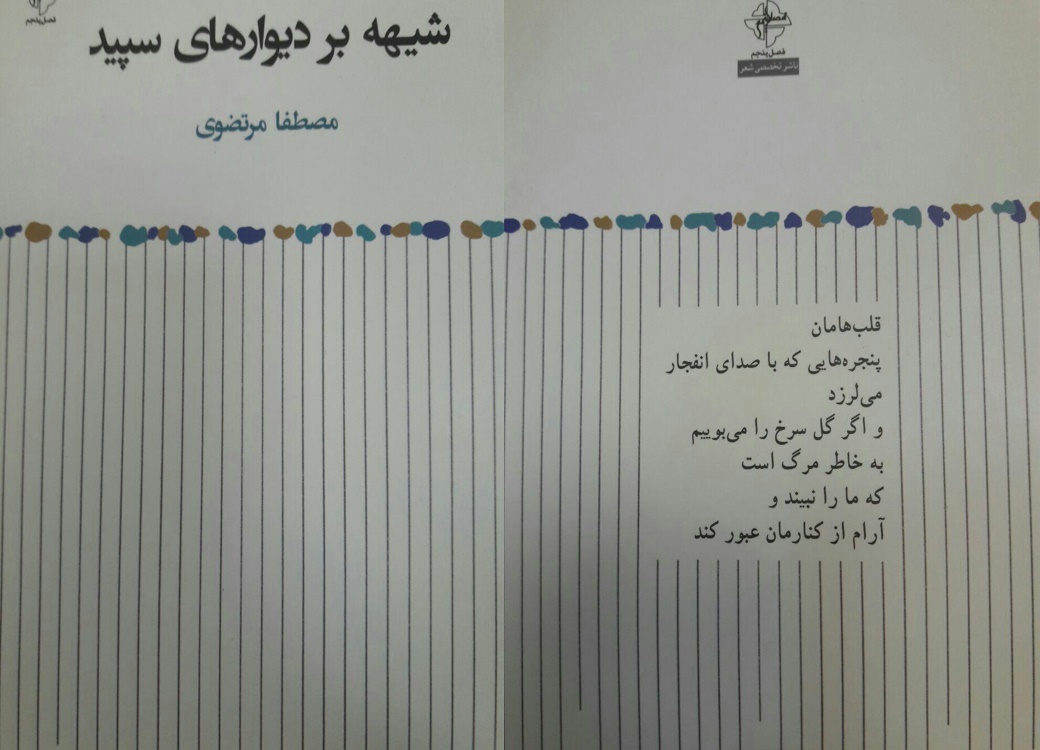 فصل پنجم
شیهه بر دیوارهای سپید
مصطفا مرتضوی
فصل پنجم
ناشر تخصصی شعر
قلب‌هامان
پنجره‌هایی که با صدای انفجار
می‌لرزد
و اگر گل سرخ را می‌بوییم
به خاطر مرگ است
که ما را نبیند و
آرام از کنارمان عبور کند